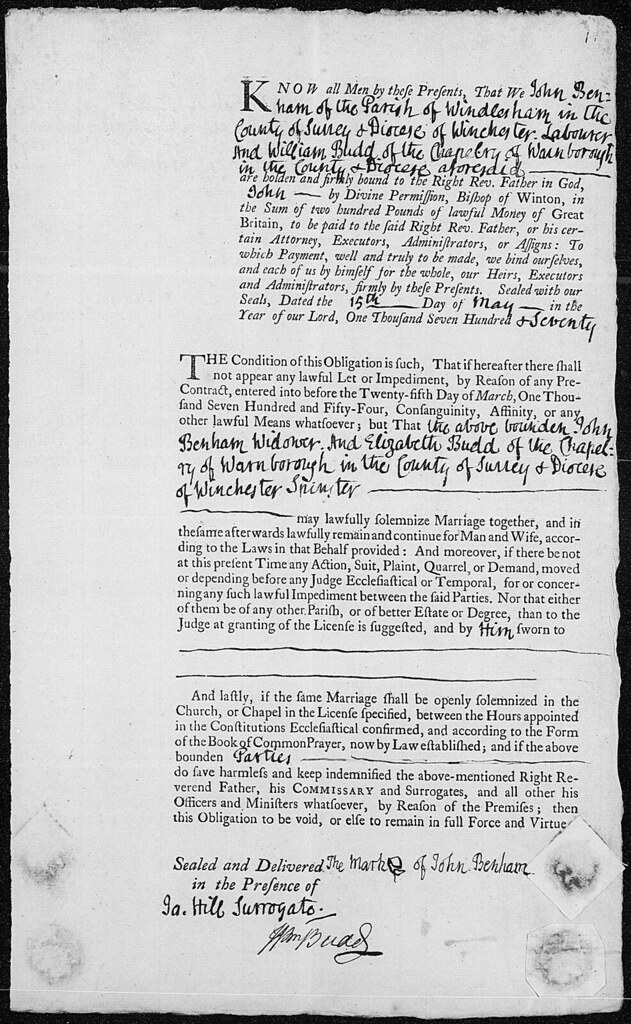 KNOW all Men by theſe Preſents, That We John Ben=
ham of the Pariſh of Windleſham in the
County of Surrey & Dioceſe of Wincheſter Labourer
And William Budd of the Chapelry of Warnborough
in the County & Dioceſe aforeſaid
are holden and firmly bound to the Right Rev. Father in God,
John — by Divine Permiſſion, Biſhop of Winton, in
the Sum of two hundred Pounds of lawful Money of Great
Britain, to be paid to the ſaid Right Rev. Father, or his cer-
tain Attorney, Executors, Adminiſtrators, or Aſſigns: To
which Payment, well and truly to be made, we bind ourſelves,
and each of us by himſelf for the whole, our Heirs, Executors
and Adminiſtrators, firmly by theſe Preſents. Sealed with our
Seals, Dated the 15th Day of May — in the
Year of our Lord, One Thouſand Seven Hundred & Seventy
THE Condition of this Obligation is ſuch, That if hereafter there ſhall
not appear any lawful Let or Impediment, by Reaſon of any Pre-
Contract, entered into before the Twenty-fifth Day of March, One Thou-
ſand Seven Hundred and Fifty-Four, Conſanguinity, Affinity, or any
other lawful Means whatſoever; but That the above bounden John
Benham Widower. And Elizabeth Budd of the Chapel-
ry of Warnborough in the County of Surrey & Dioceſe
of Wincheſter Spinster
may lawfully ſolemnize Marriage together, and in
theſame afterwards lawfully remain and continue for Man and Wife, accor-
ding to the Laws in that Behalf provided: And moreover, if there be not
at this preſent Time any Action, Suit, Plaint, Quarrel, or Demand, moved
or depending before any Judge Eccleſiaſtical or Temporal, for or concer-
ning any ſuch lawful Impediment between the ſaid Parties. Nor that either
of them be of any other Pariſh, or of better Eſtate or Degree, than to the
Judge at granting of the Licenſe is ſuggeſted, and by Him ſworn to
And laſtly, if the ſame Marriage ſhall be openly ſolemnized in the
Church, or Chapel in the Licenſe ſpecified, between the Hours appointed
in the Conſtitutions Eccleſiaſtical confirmed, and according to the Form
of the Book of Common Prayer, now by Law eſtabliſhed; and if the above
bounden Parties
do ſave harmleſs and keep indemnified the above-mentioned Right Re-
verend Father, his COMMISSARY and Surrogates, and all other his
Officers and Miniſters whatſoever, by Reaſon of the Premiſes; then
this Obligation to be void, or elſe to remain in full Force and Virtue
Sealed and Delivered The Mark of John Benham
in the Preſence of
Ja. Hill Surrogate.
Wm Budd